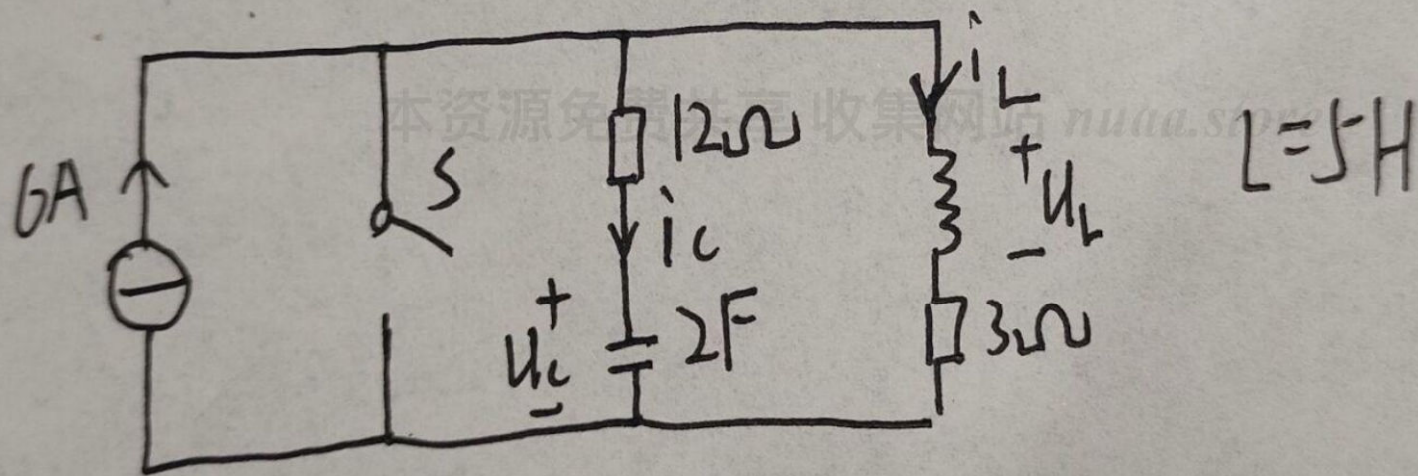 本资源免费共享 收集网站 nuaa.store
6A
S
12Ω
ic
+
uc
-
2F
iL
+
uL
-
3Ω
L=5H